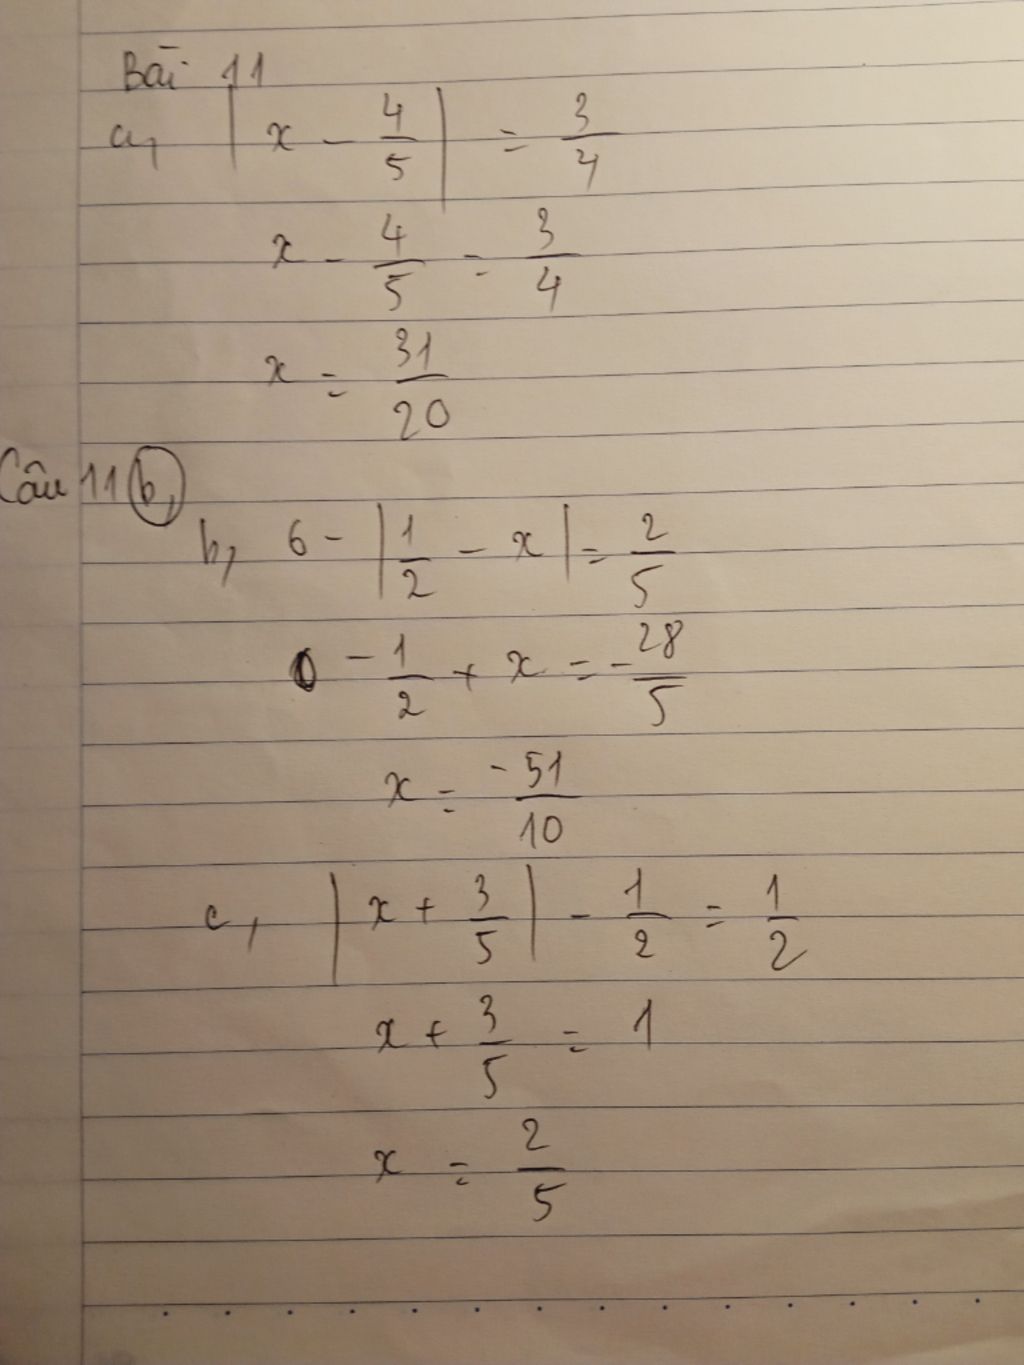 Bài 11
a, | x - 4/5 | = 3/4
x - 4/5 = 3/4
x = 31/20
Câu 11 b,
b, 6 - | 1/2 - x | = 2/5
0 - 1/2 + x = - 28/5
x = -51/10
c, | x + 3/5 | - 1/2 = 1/2
x + 3/5 = 1
x = 2/5